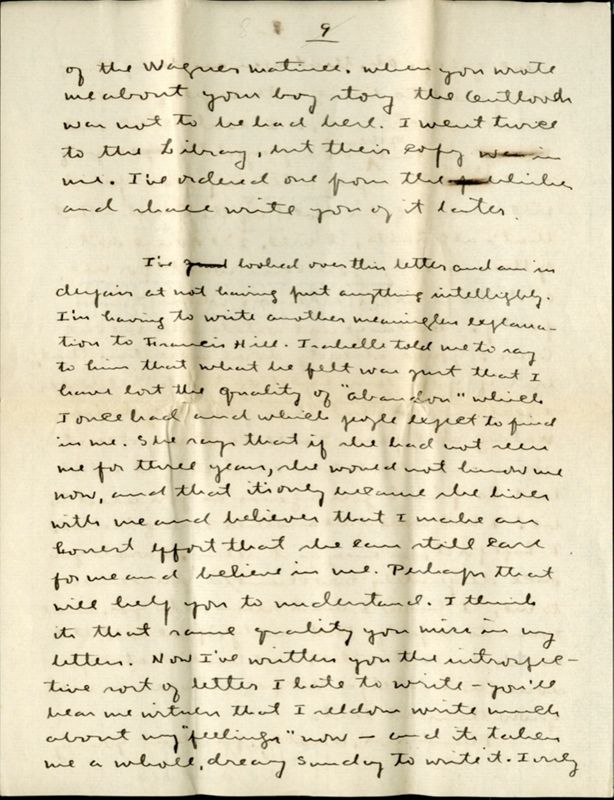 9
of the Wagner matinee. When you wrote
me about your boy story the Outlook
was not to be had here. I went twice
to the Library, but their copy was in
use. I've ordered one from the
and shall write you of it later.
I've looked over this letter and am in
despair at not having put anything intelligibly.
I'm having to write another meaningless explana-
tion to Francis Hill. Isabelle told me to say
to him that what he felt was just that I
have lost the quality of "abandon" which
I once had and which people expect to find
in me. She says that if she had not seen
me for three years, she would not know me
now, and that it's only because she lives
with me and believes that I make an
honest effort that she can still care
for me and believe in me. Perhaps that
will help you to understand. I think
its that same quality you miss in my
letters. Now I've written you the introspec-
tive sort of letter I hate to write - you'll
bear me witness that I seldom write much
about my "feelings" now - and its taken
me a whole, dreary Sunday to write it. I only